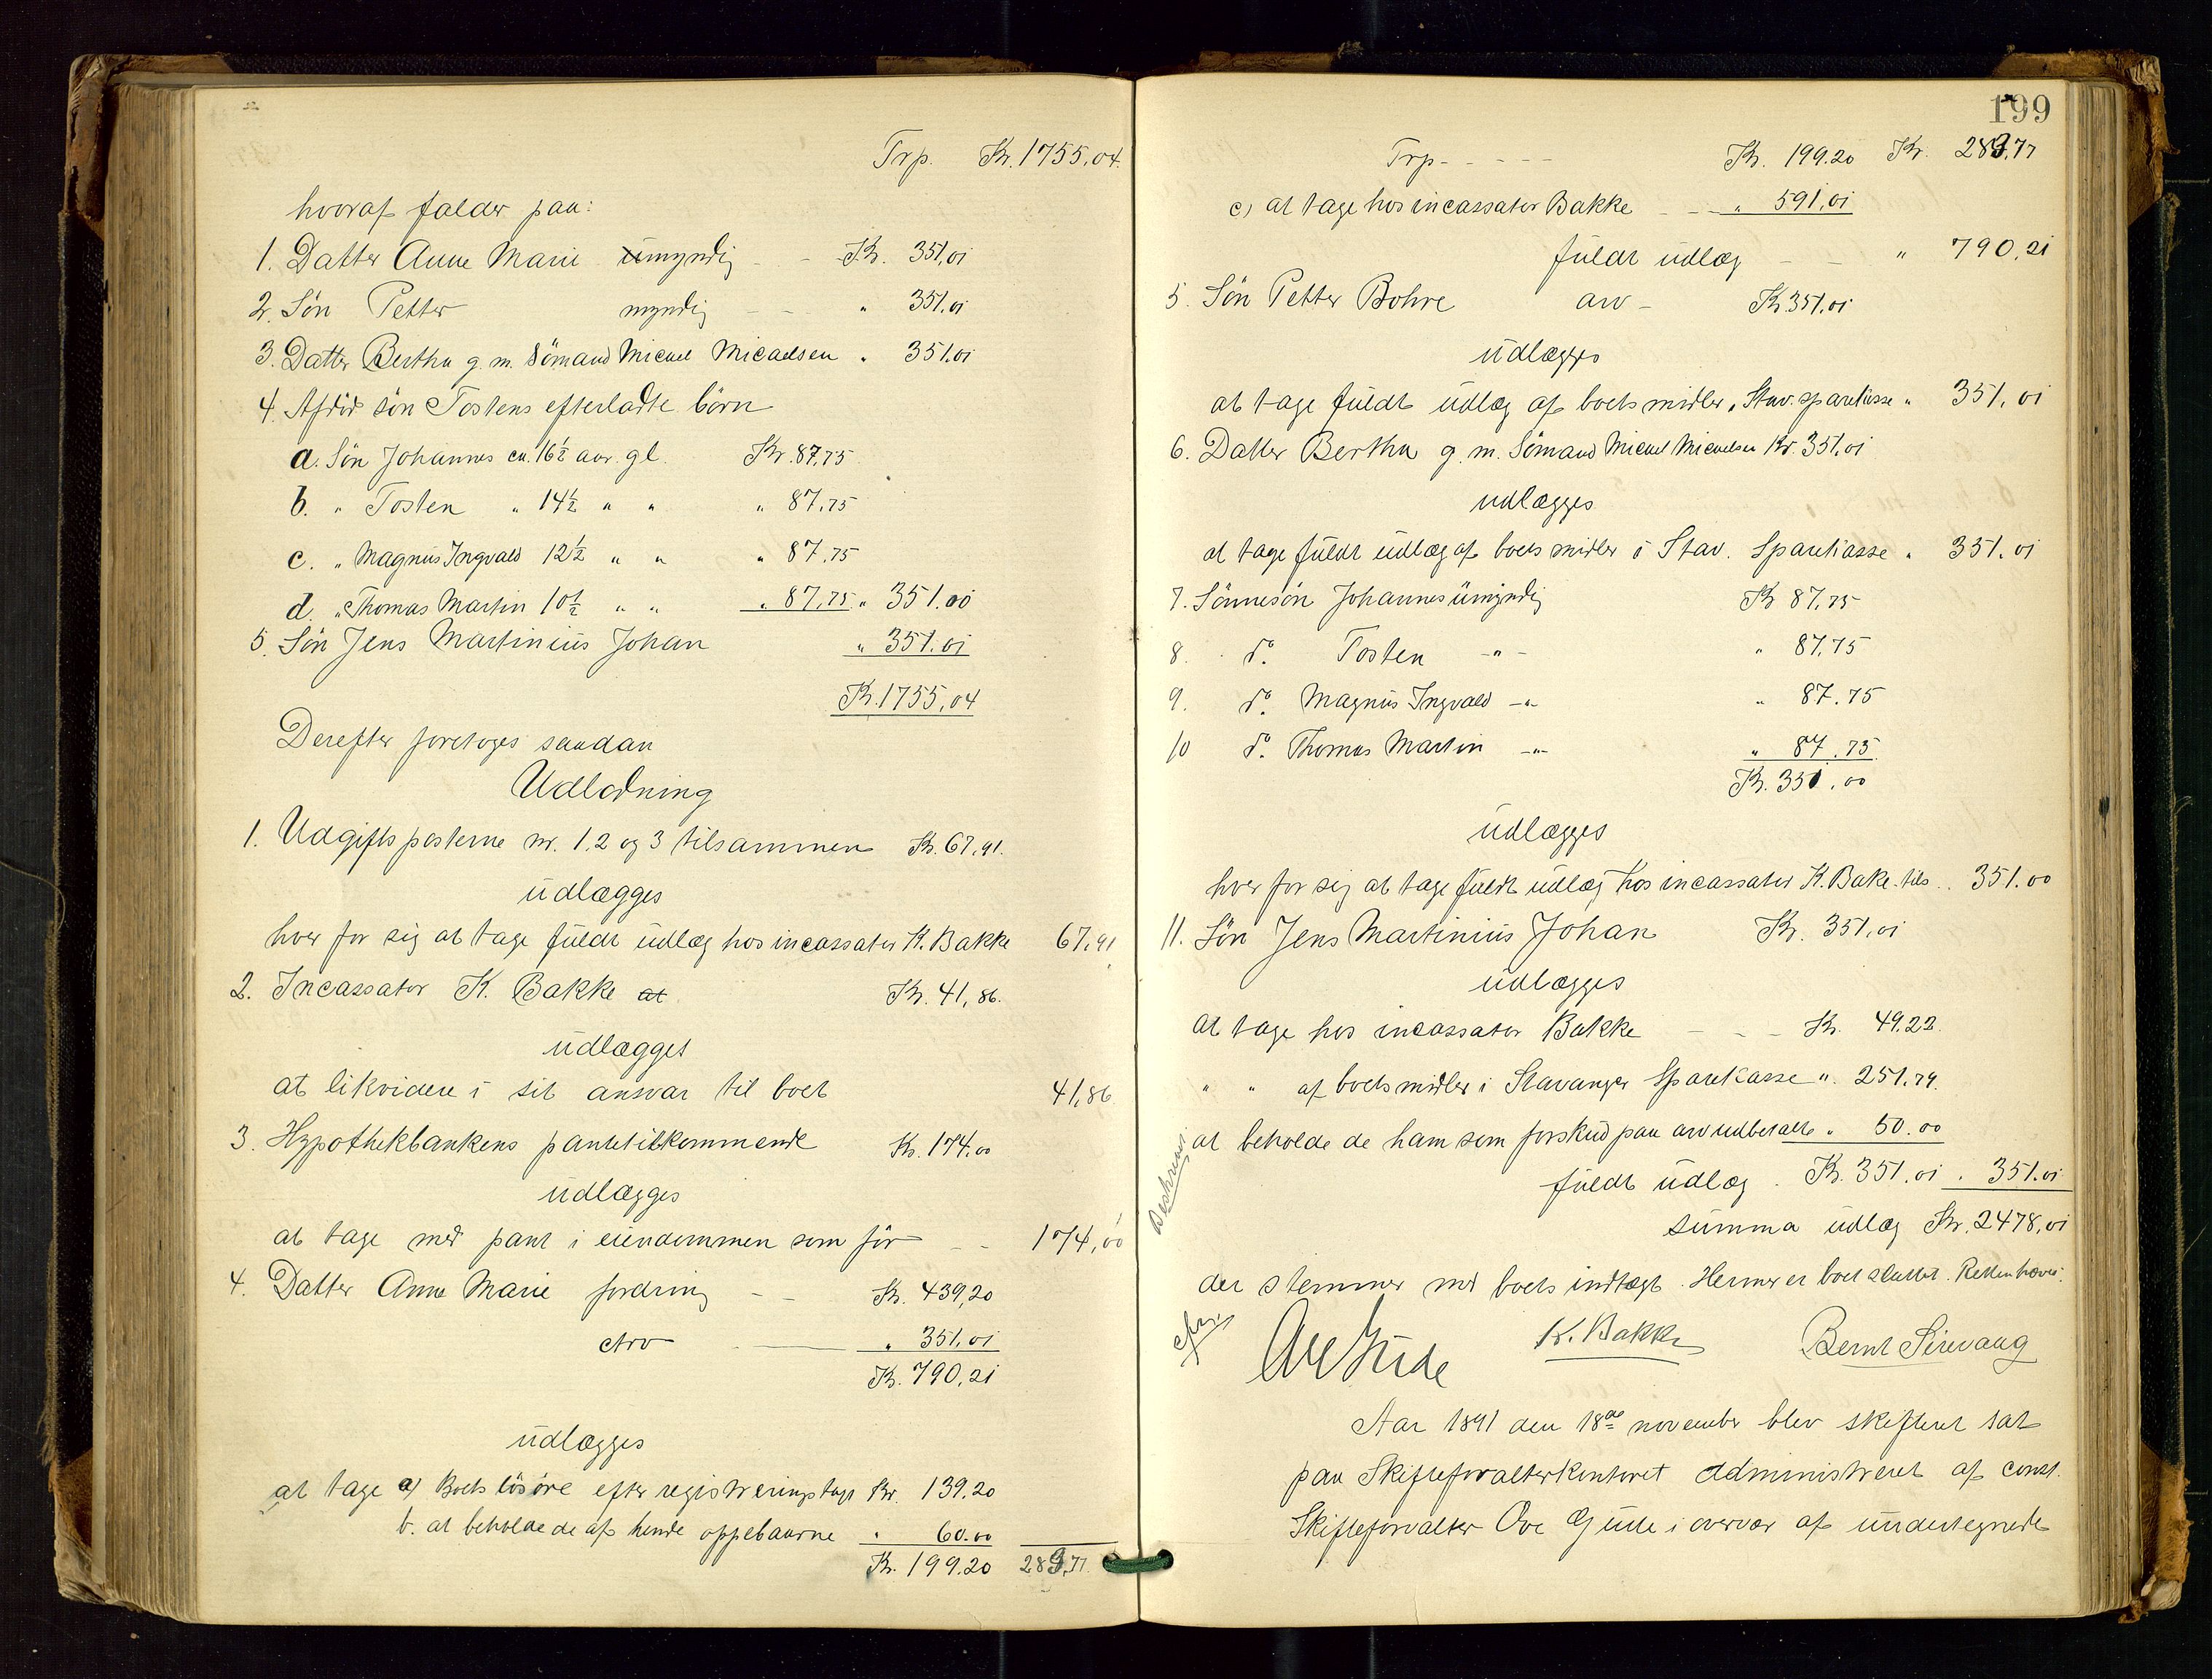 Trp. Kr. 1755,04.
hvoraf falder paa:
1. Datter Anne Marie umyndig - - Kr. 351,01
2. Søn Petter myndig - - " 351,01
3. Datter Bertha g. m. Sømand Micael Micaelsen " 351.01
4. Afdød søn Tostens efterladte børn
a. Søn Johannes ca. 16½ aar. gl. Kr. 87,75
b. " Tosten " 14½ " " " 87,75
c. " Magnus Ingvald 12½ " " " 87,75
d. " Thomas Martin 10½ " " " 87,75 " 351.00
5. Søn Jens Martinius Johan " 351.01
Kr. 1755,04
Derefter foretoges saadan
Udlodning
1. Udgiftsposterne nr. 1, 2 og 3 tilsammen Kr. 67,91.
udlægges
hver for sig at tage fuldt udlæg hos incassator K. Bakke 67,91
2. Incassator K. Bakke at Kr. 41,86.
udlægget
at likvidere i sit ansvar til boet 41,86
3. Hypothekbankens pantetilkommende Kr. 174,00
udlægges
at tage med pant i eiendommen som før - - 174,00
4. Datter Anne Marie fordring - - Kr. 439,20
Arv " 351,01
Kr. 790,21
udlægges
at tage a) Boets løsøre efter registreringstaxt Kr. 139,20
b. at beholde de af hende oppebaarne " 60.00
Kr. 199.20 283,77.
199
Trp - - - - - Kr. 199.20 Kr. 283,77
c) at tage hos incassator Bakke - - " 591,01
fuldt udlæg - - " 790,21
5. Søn Petter Bohre arv - Kr. 351,01
udlægges
at tage fuldt udlæg af boets midler i Stav. sparekasse " 351,01
6. Datter Bertha g. m. Sømand Micael Micaelsen Kr. 351,01
udlægges
at tage fuldt udlæg af boets midler i Stav. Sparekasse " 351.01
7. Sønnesøn Johannes umyndig Kr 87,75
8. do. Tosten -"- " 87,75
9. do. Magnus Ingvald -"- " 87.75
10 do. Thomas Martin -"- " 87.75
Kr. 351.00
udlægges
hver for sig at tage fuldt udlæg hos incassator K. Bake. tils. . 351.00
11. Søn Jens Martinius Johan Kr. 351,01
udlægges
at tage hos incassator Bakke - - - Kr. 49.22.
" " af boets midler i Stavanger Sparekasse " 251.79.
at beholde de ham som forskud paa arv udbetalte " 50.00
fuldt udlæg . Kr. 351.01 . 351.01
summa udlæg Kr. 2478,01
Beskreven
der stemmer med boets indtægt. Hermed er boet sluttet. Retten hævet.
Ove Gude K. Bakke Bernt Sirevaag
Aar 1891 den 18de november blev skifteret sat
paa Skifteforvalterkontoret administreret af const.
Skifteforvalter Ove Gude i overvær af undertegnede